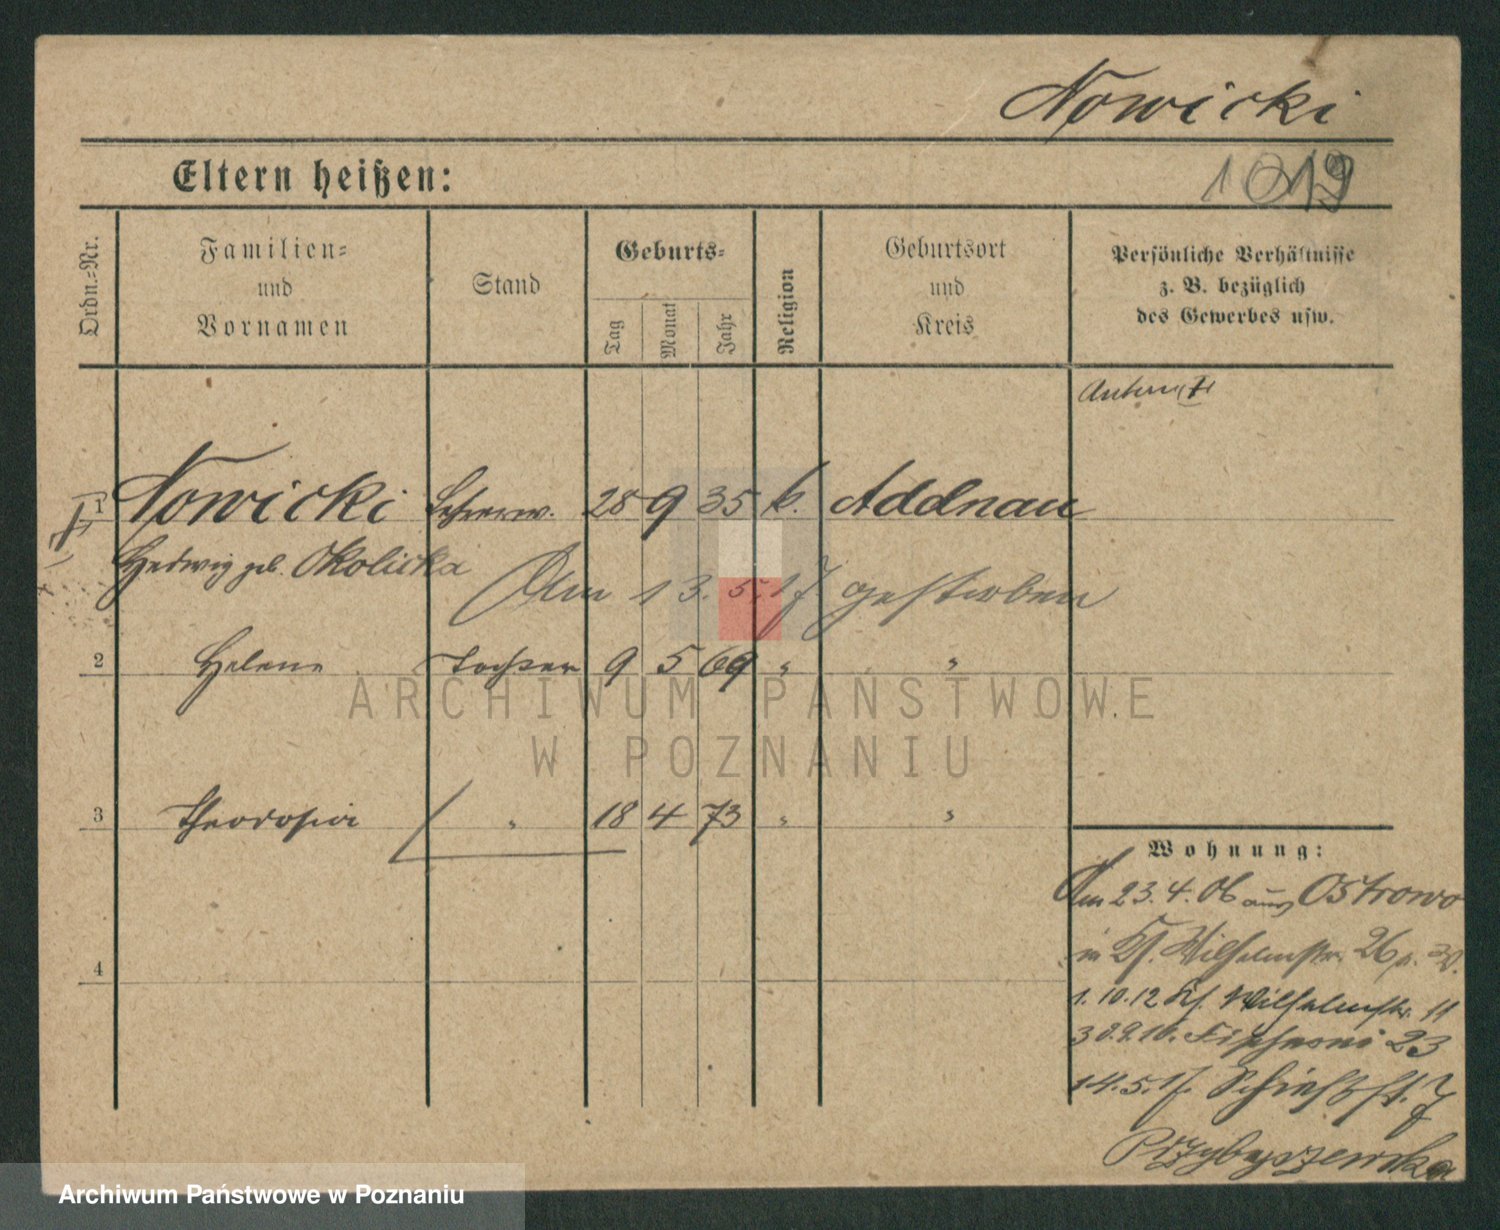 Nowicki
Eltern heißen:
1019
Ordn.=Nr.
Familien=
und
Vornamen
Stand
Geburts=
Tag
Monat
Jahr
Religion
Geburtsort
und
Kreis
Persönliche Verhältnisse
z. B. bezüglich
des Gewerbes usw.
1 Nowicki Lehrerw. 28 9 35 k. Addnau
Hedwig geb. Okolicka
Am 13.5.17 gestorben
2 Helene Tochter 9 5 69 " "
3 Theodosia " 18 4 73 " "
4
Wohnung:
Am 23.4.06 aus Ostrowo
in Wilhelmstr. 26
1.10.12 Wilhelmstr. 11
30.9.16. 23
14.5.17. Schießst. 7
Przybyszewska
ARCHIWUM PAŃSTWOWE
W POZNANIU
Archiwum Państwowe w Poznaniu